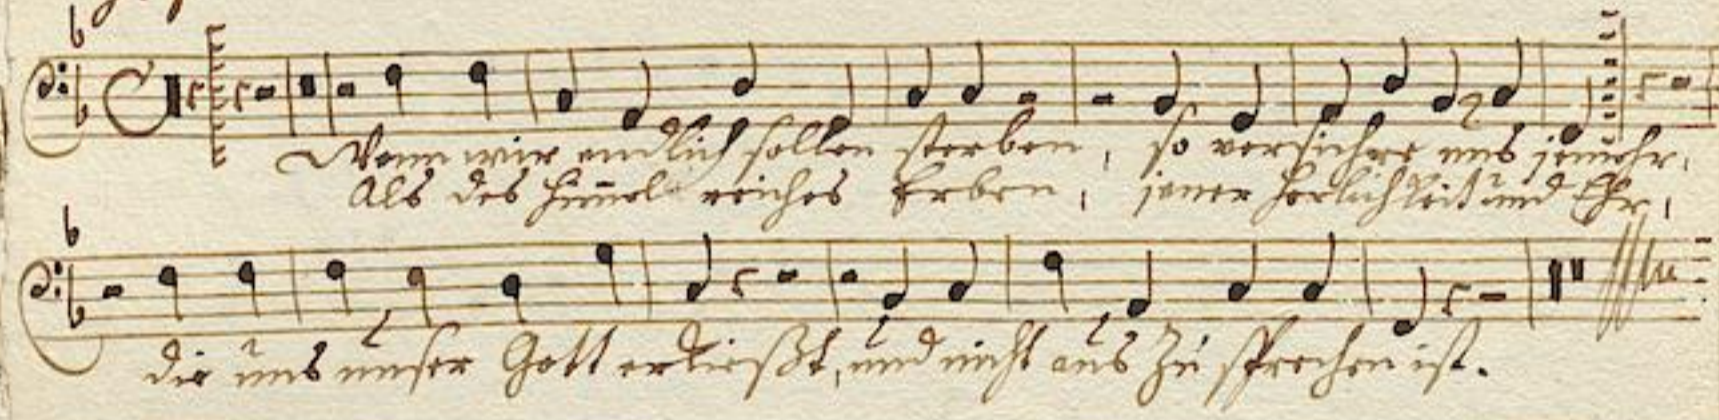 Wenn wir endlich sollen sterben, so versichere uns jemehr,
Als des Himel reiches Erben, jener Herlichkeit und Ehr,
die uns unser Gott erkießt, und nicht aus zu sprechen ist.